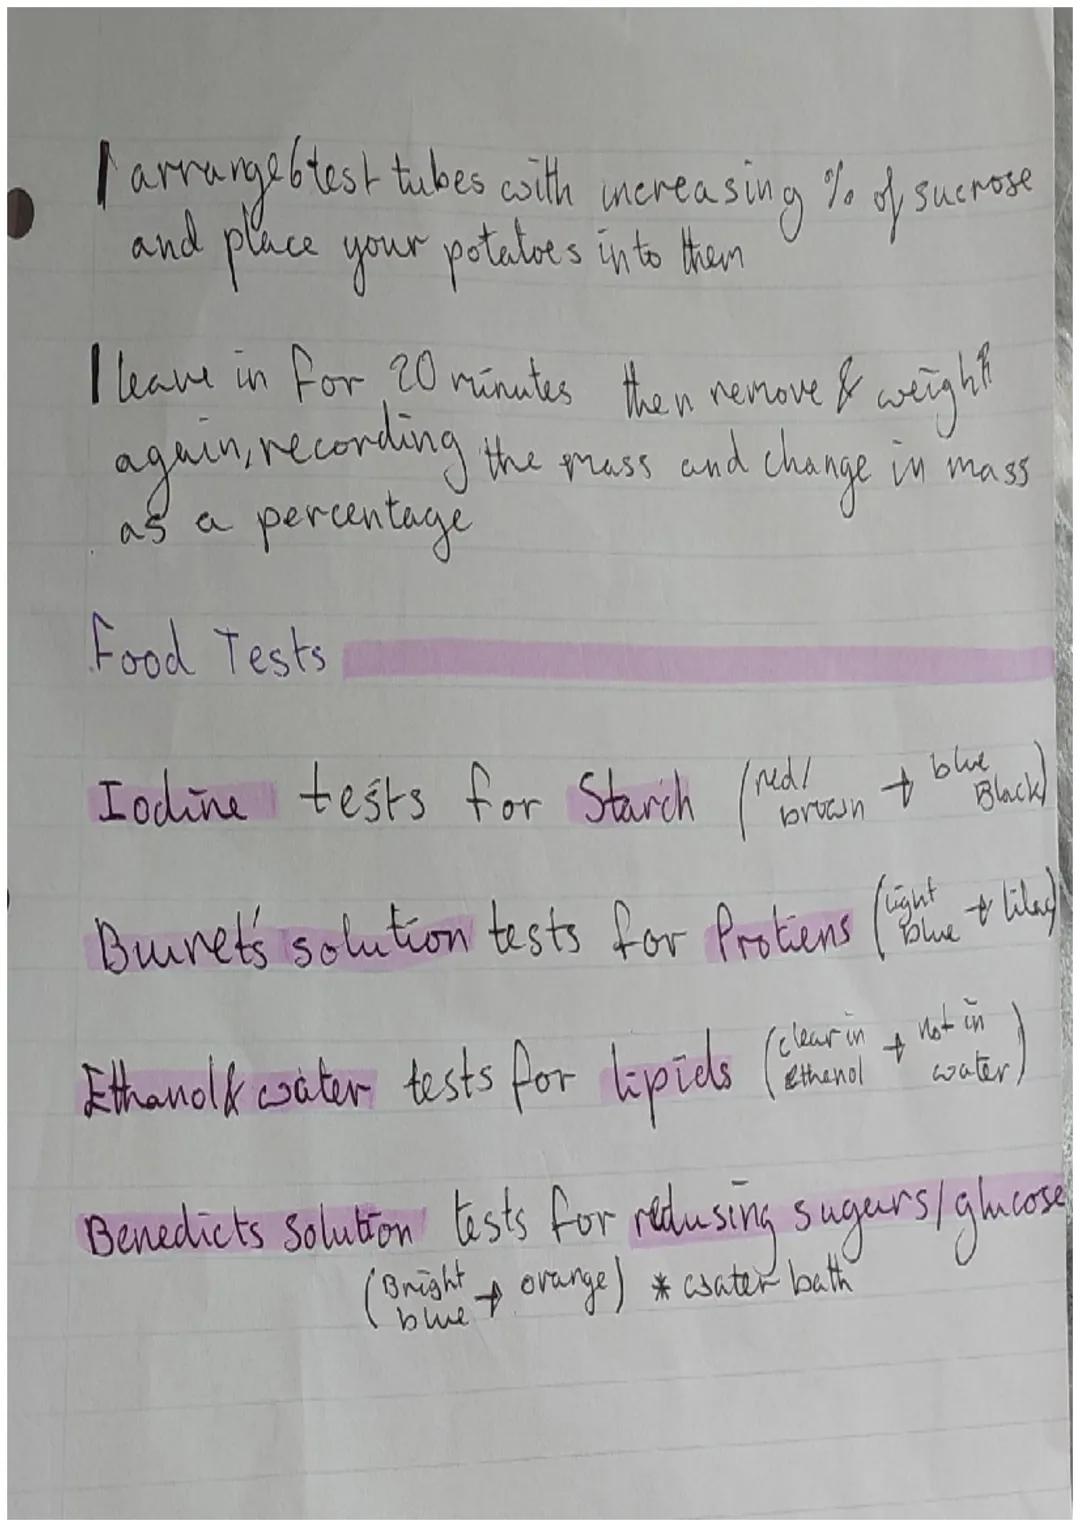 arrange 6 test tubes with increasing % of sucrose
and place your potatoes into them
leave in for 20 minutes then remove & weigh
again, recording the mass and change in mass
as a percentage
Food Tests
Iodine tests for Starch (red/brown → blue Black)
Buiret's solution tests for Protiens (light blue → lilac)
Ethanol & water tests for lipids (clear in ethanol → not in water)
Benedicts Solution tests for redusing sugars/glucose
(Bright blue → orange) * water bath